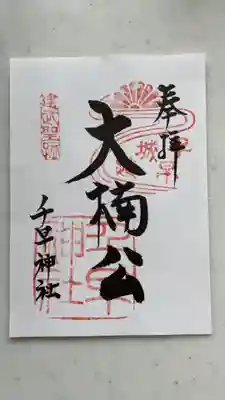 奉拝
大楠公
千早神社
建武聖跡
千早城跡